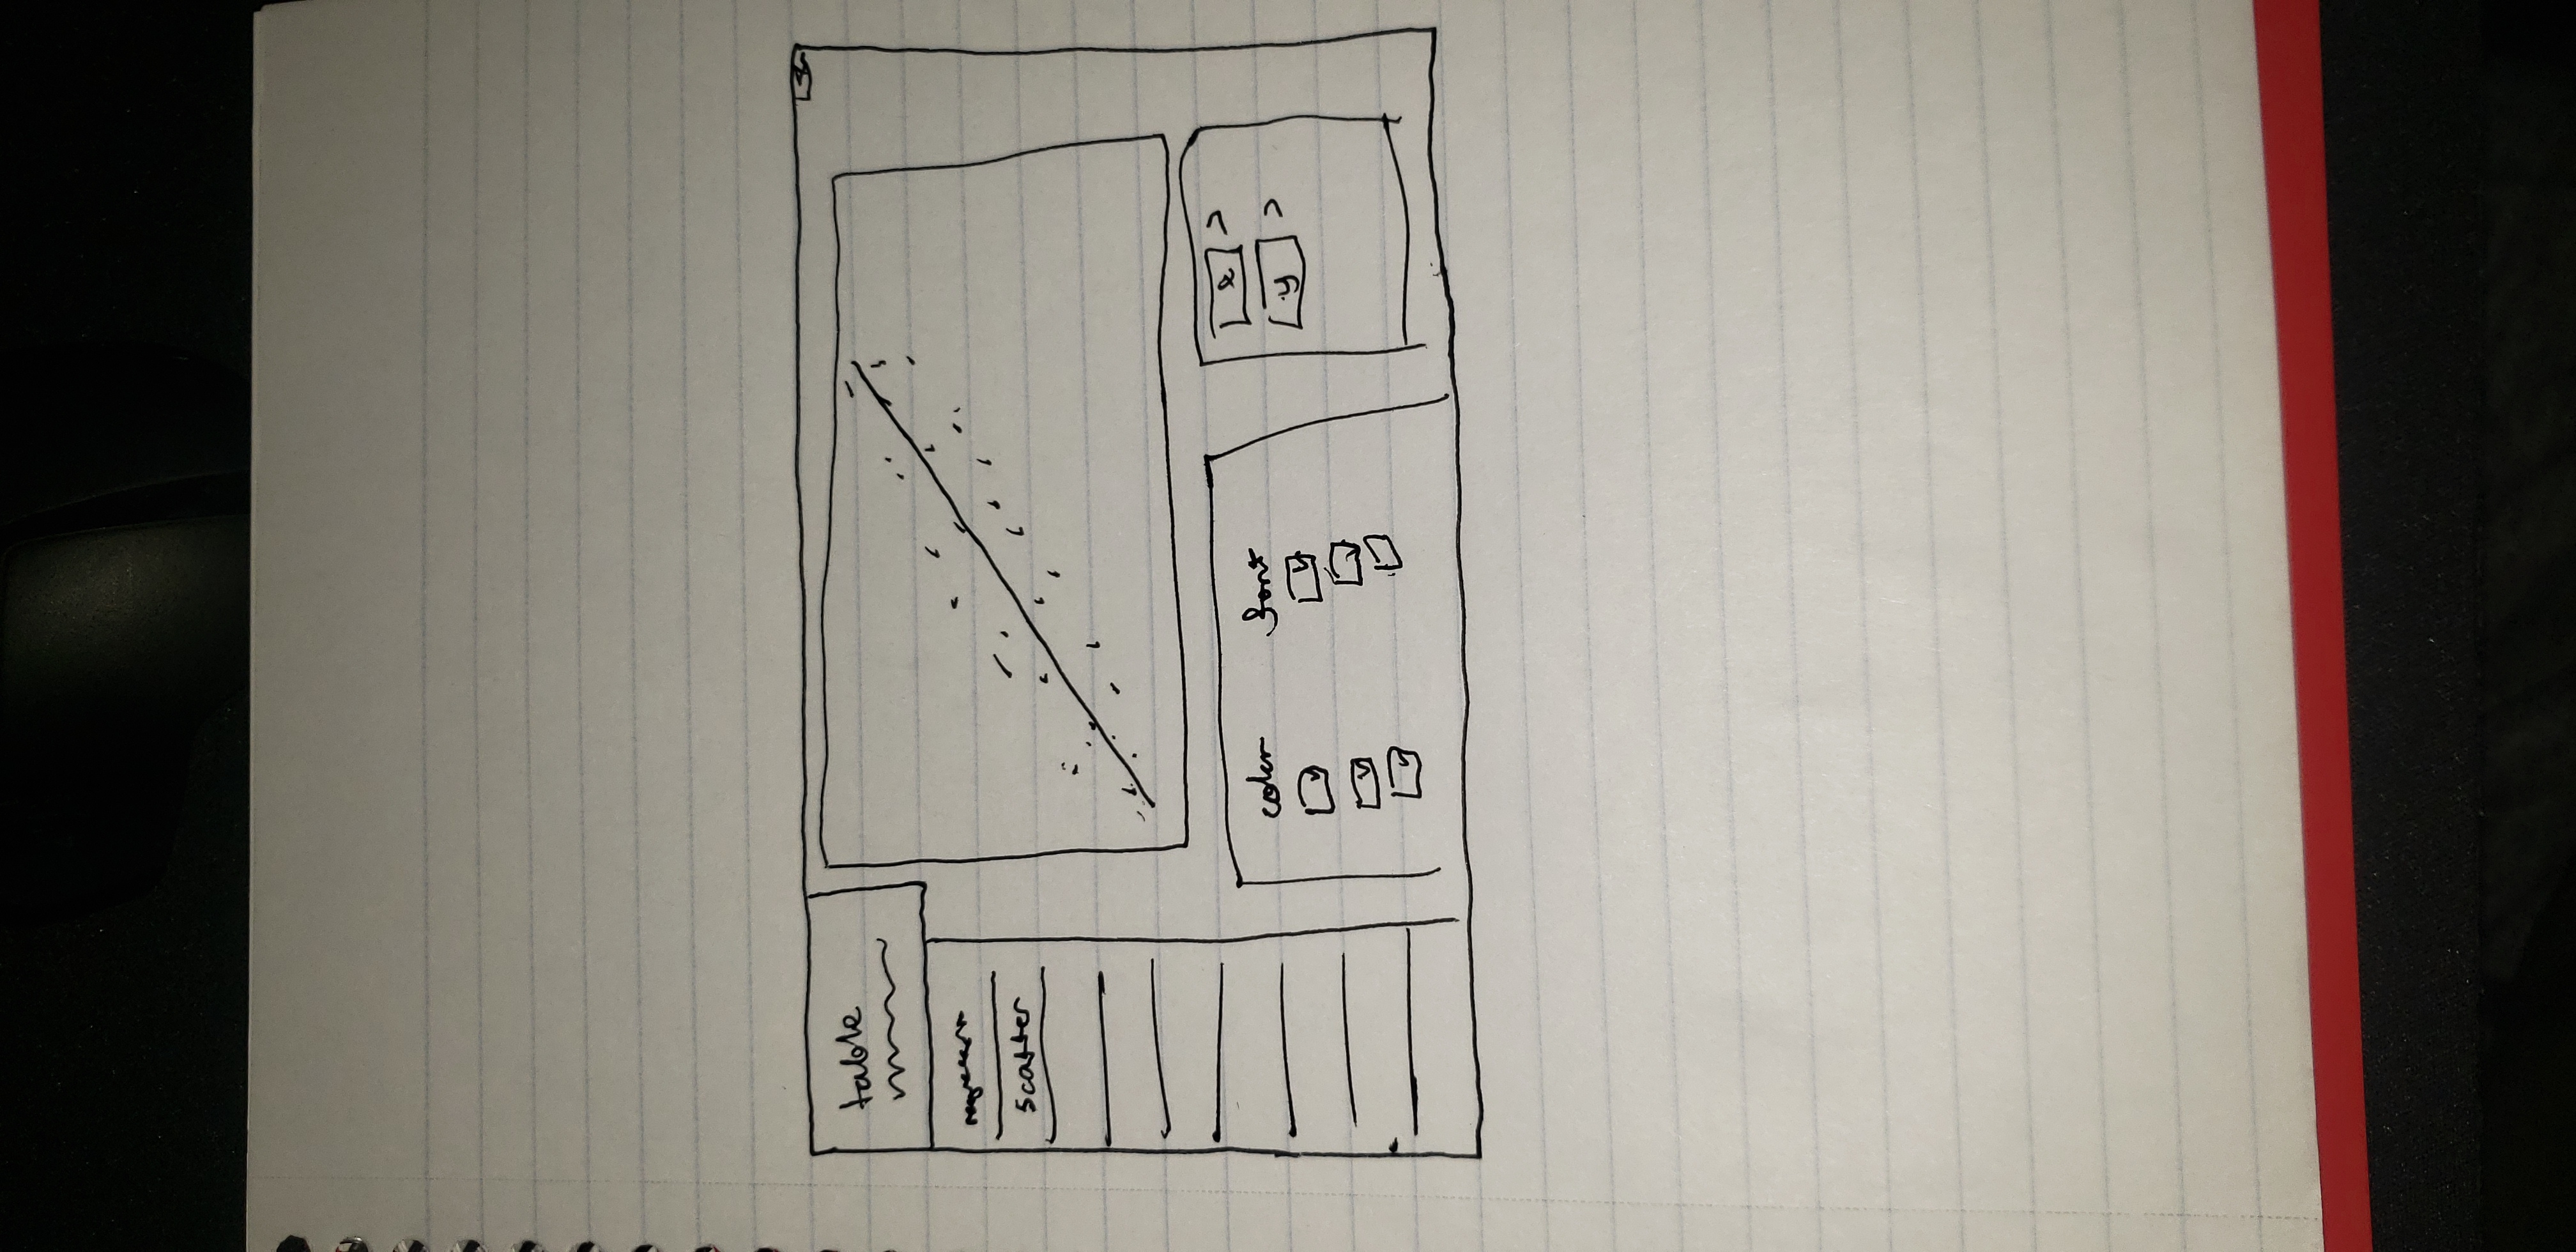 table
regression
scatter
color font
x >
y >